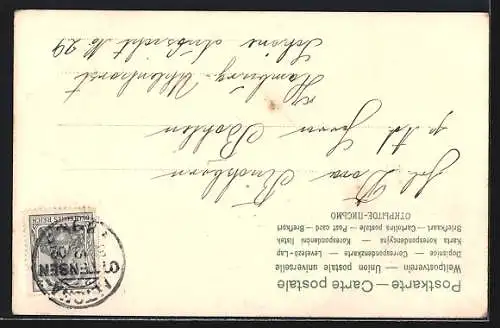 Postkarte — Carte postale
Weltpostverein — Union postale universelle
Dopisnice — Correspondenzkarte — Levelező-Lap
Karta Korespondencyjna — Korespondenční lístek
Briefkaart — Cartolina postale — Post card — Brefkort
ОТКРЫТОЕ-ПИСЬМО
Frl. Dora Kirchhorn
p. Ad. Herrn Bohlen
Hamburg-Uhlenhorst
Schöne Aussicht No 29
DEUTSCHES REICH
ALTONA